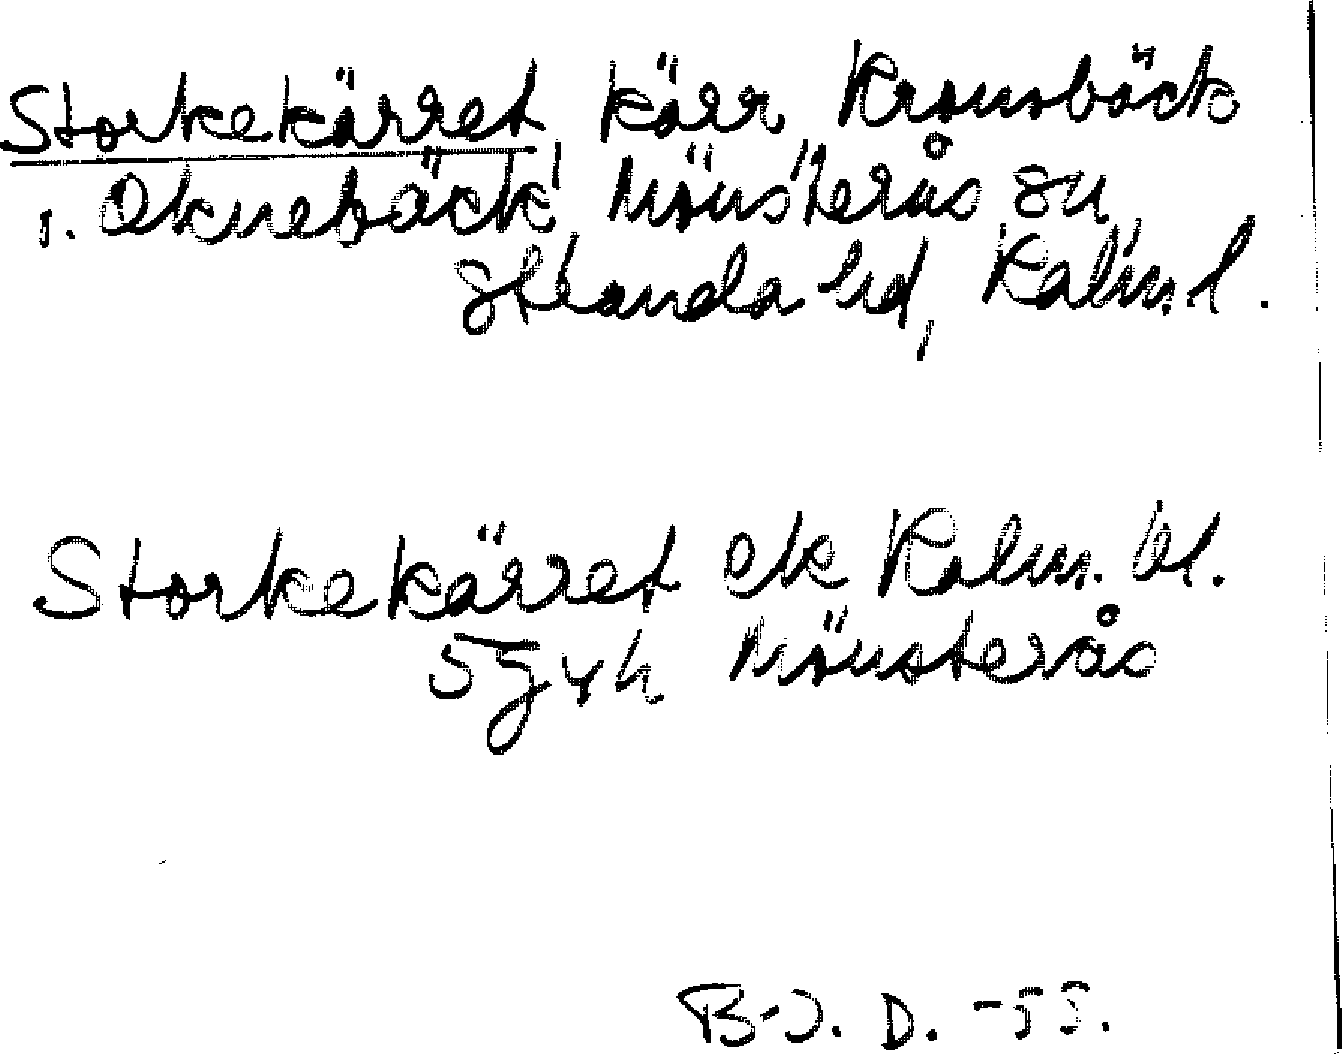 Storkekärret, kärr, Kronobäck
1. Oknebäck, Mönsterås sn
Stranda hd, Kalm. l.
Storkekärret ek Kalm. bl.
5g4h Mönsterås
B-J. D. -55.